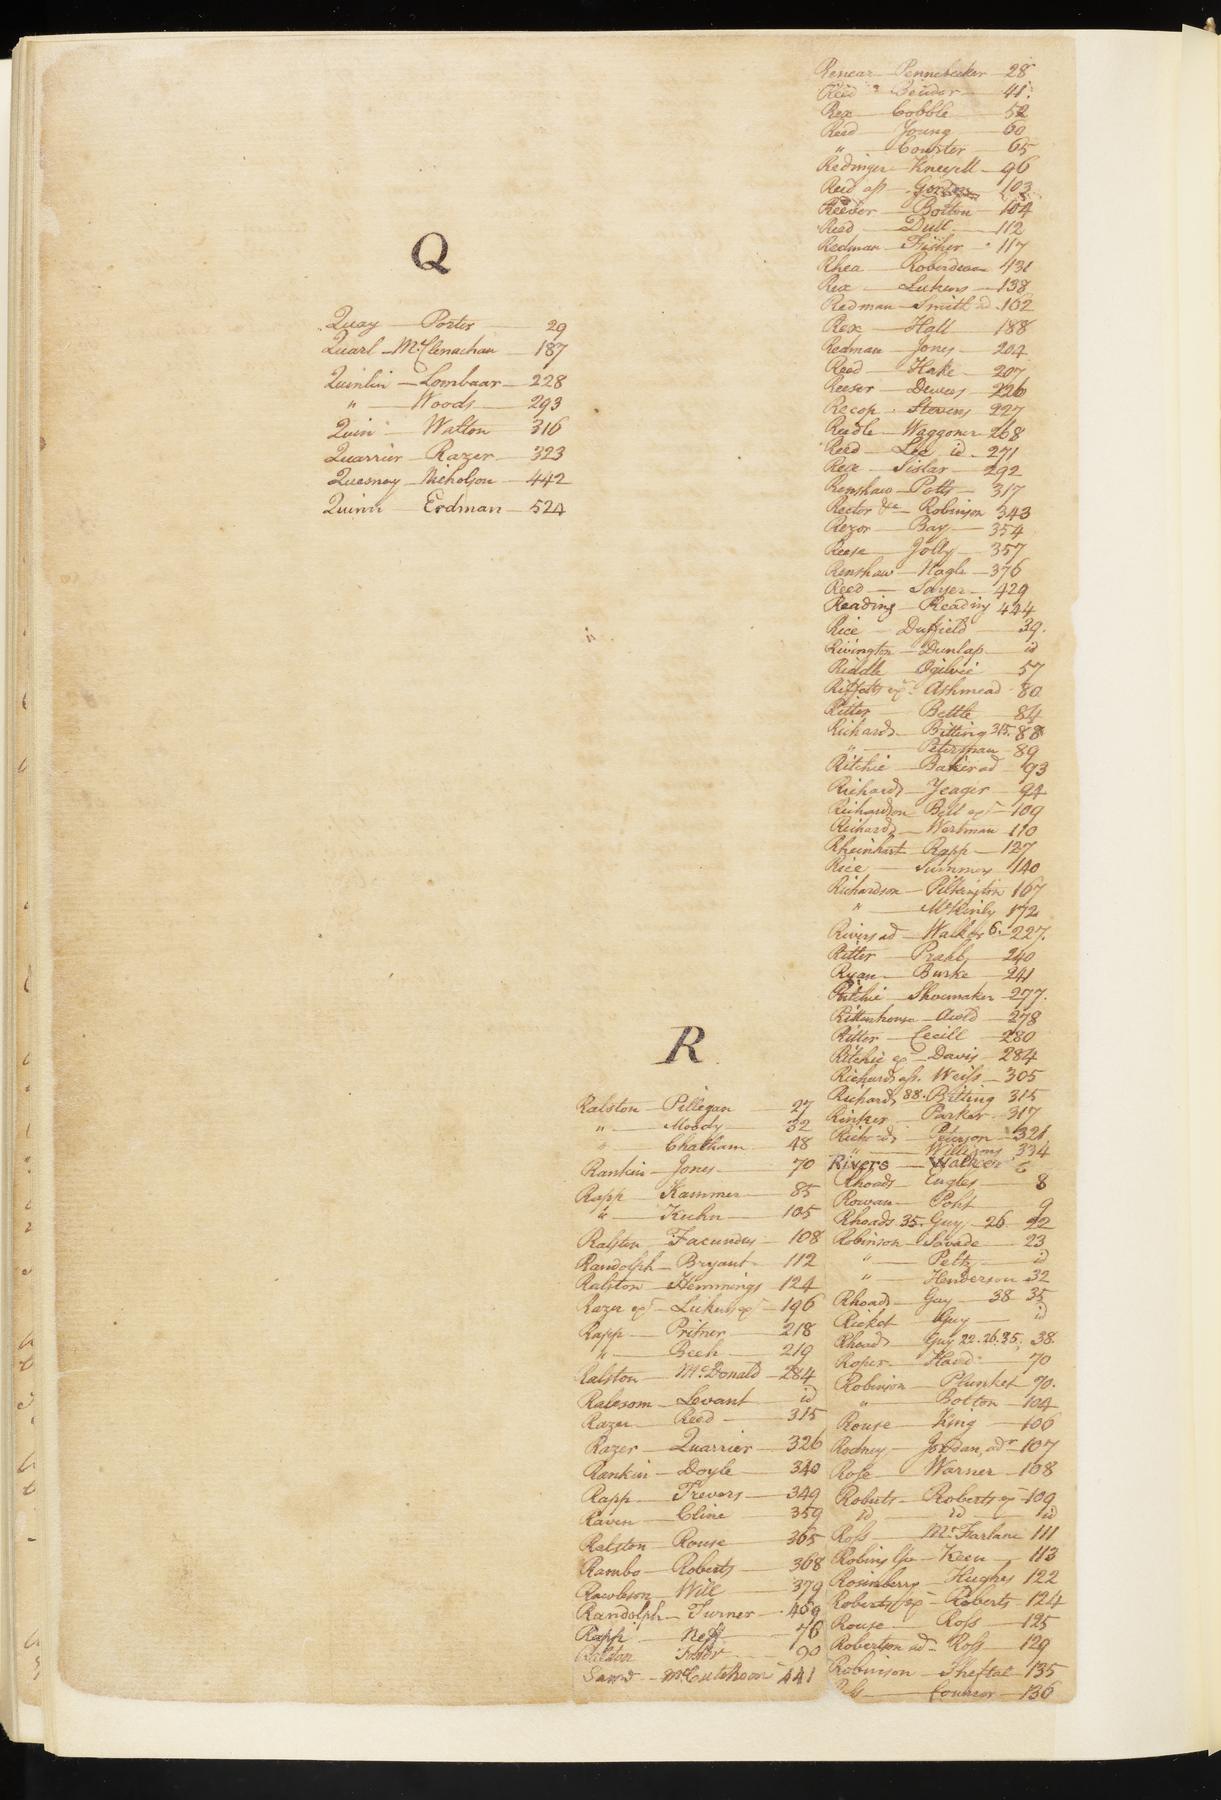 Q
Quay — Porter — 29
Quarl — McClenachan — 187
Quinlin — Lombaar — 228
" — Woods — 293
Quin — Walton 316
Quarrier — Razer — 323
Quesney — Nicholson — 442
Quinn — Erdman — 524
R
Ralston — Pillegan — 27
" — Moody — 32
" — Chatham — 48
Rankin — Jones — 70
Rapp — Kammer — 85
" — Kuhn — 105
Ralston — Facundus — 108
Randolph — Bryant — 112
Ralston — Hemmings — 124
Razer exr — Lukens exr — 196
Rapp — Pritner — 218
" — Bech — 219
Ralston — McDonald — 284
Ralesom — Levant — id
Razer — Reed — 315
Razer — Quarrier — 326
Rankin — Doyle — 340
Rapp — Trevors — 349
Raven — Cline — 359
Ralston — Rouse — 365
Rambo — Roberts — 368
Rawlson — Will — 379
Randolph — Turner — 459
Rapp — Neff — 76
Ralston — 90
Sawd — McCutcheon 441
Rencar — Pennebecker — 28
Reed — Bender — 41
Rex — Cobble — 52
Reed — Young — 60
" — Couster — 65
Redinger — Kneezell — 96
Reed ass — 103
Reever — Bolton — 104
Reed — Dull — 112
Redman — Fisher — 117
Rhea — Roberdeau 431
Rex — Lukens — 138
Redman — Smith ad — 162
Rex — Hall — 188
Redman — Jones — 204
Reed — Hake — 207
Reeser — Dewees — 226
Recop — Stevens 227
Reedle — Waggoner — 268
Reed — Lex id — 271
Rex — Sistar — 292
Renshaw — Potts — 317
Rector &c — Robinson 343
Rezor — Bay — 354
Reese — Jolly — 357
Renshaw — Nagle — 376
Reed — Sayer — 429
Reading — Reading 444
Rice — Duffield — 39
Rivington — Dunlap — id
Riddle — Ogilvie — 57
exr Ashmead 80
Ritter — Bettle — 84
Richards — Bitting 315. 88
" — Petersman — 89
Ritchie — Baker ad — 93
Richards — Yeager — 94
Richardson — Bell exr — 109
Richards — Wertman — 110
Rheinhart — Rapp — 127
Rice — Summers 140
Richardson — Pilkington 167
" — McKinly 172
Rivers ad — Walker 6. — 227.
Ritter — Prahl — 240
Ryan — Burke — 241
Ritchie — Shoemaker — 277.
Rittenhouse — Auld — 278
Ritter — Cecill — 280
Ritchie exr — Davis — 284
Richards ass. Weiss — 305
Richards 88. Bitting 315
Rinker — Parker — 317
Richards — Peterson — 321
" — Willisons 334
Rivers — Walker 6
Rhoads — Engles — 8
Rowan — Post — 9
Rhoads 35. Guy — 26 — 22
Robinson — Savade — 23
" — Peltz — id
" — Henderson 32
Rhoads — Guy — 38 35
Ricket — Guy — id
Rhoads — Guy 22. 26. 35. 38.
Roper — Hand — 70
Robinson — Plunket — 90.
" — Bolton — 104
Rouse — King — 106
Rodney — Jordan, adr — 107
Rose — Warner — 108
Roberts — Roberts exr — 109
id — id — id
Ross — McFarlane 111
Robins — Keen — 113
Rosinberry — Hughes 122
Roberts exr — Roberts — 124
Rouse — Ross — 125
Roberton ad — Ross — 129
Robinson — Sheftal — 135
— Connor — 136